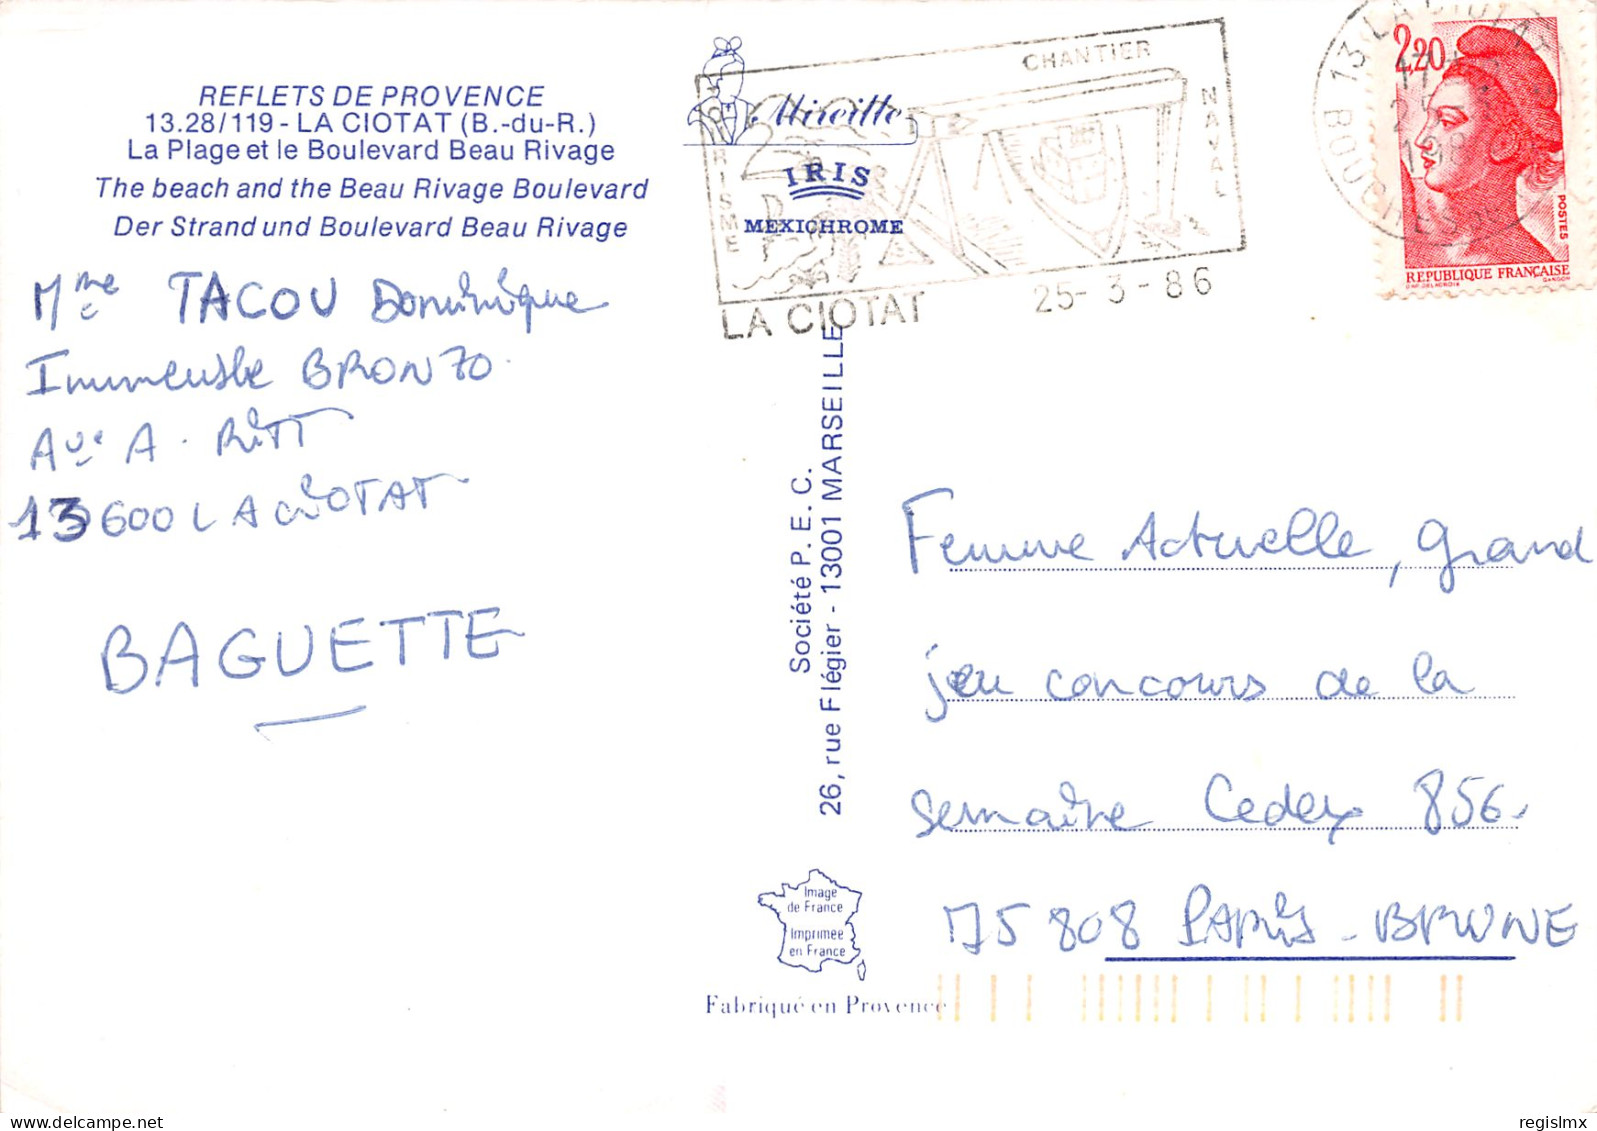 REFLETS DE PROVENCE
13.28/119 - LA CIOTAT (B.-du-R.)
La Plage et le Boulevard Beau Rivage
The beach and the Beau Rivage Boulevard
Der Strand und Boulevard Beau Rivage
Mme TACOU Dominique
Immeuble BRONZO
Ave A. RITT
13600 LA CIOTAT
BAGUETTE
Mireille
IRIS
MEXICHROME
TOURISME
CHANTIER
NAVAL
LA CIOTAT
25-3-86
13 LA CIOTAT
BOUCHES DU
2,20
POSTES
REPUBLIQUE FRANÇAISE
Société P.E.C.
26, rue Flégier - 13001 MARSEILLE
Femme Actuelle, grand
jeu concours de la
semaine Cedex 856.
75808 PARIS-BRUNE
Image
de France
Imprimée
en France
Fabriqué en Provence
regislmx